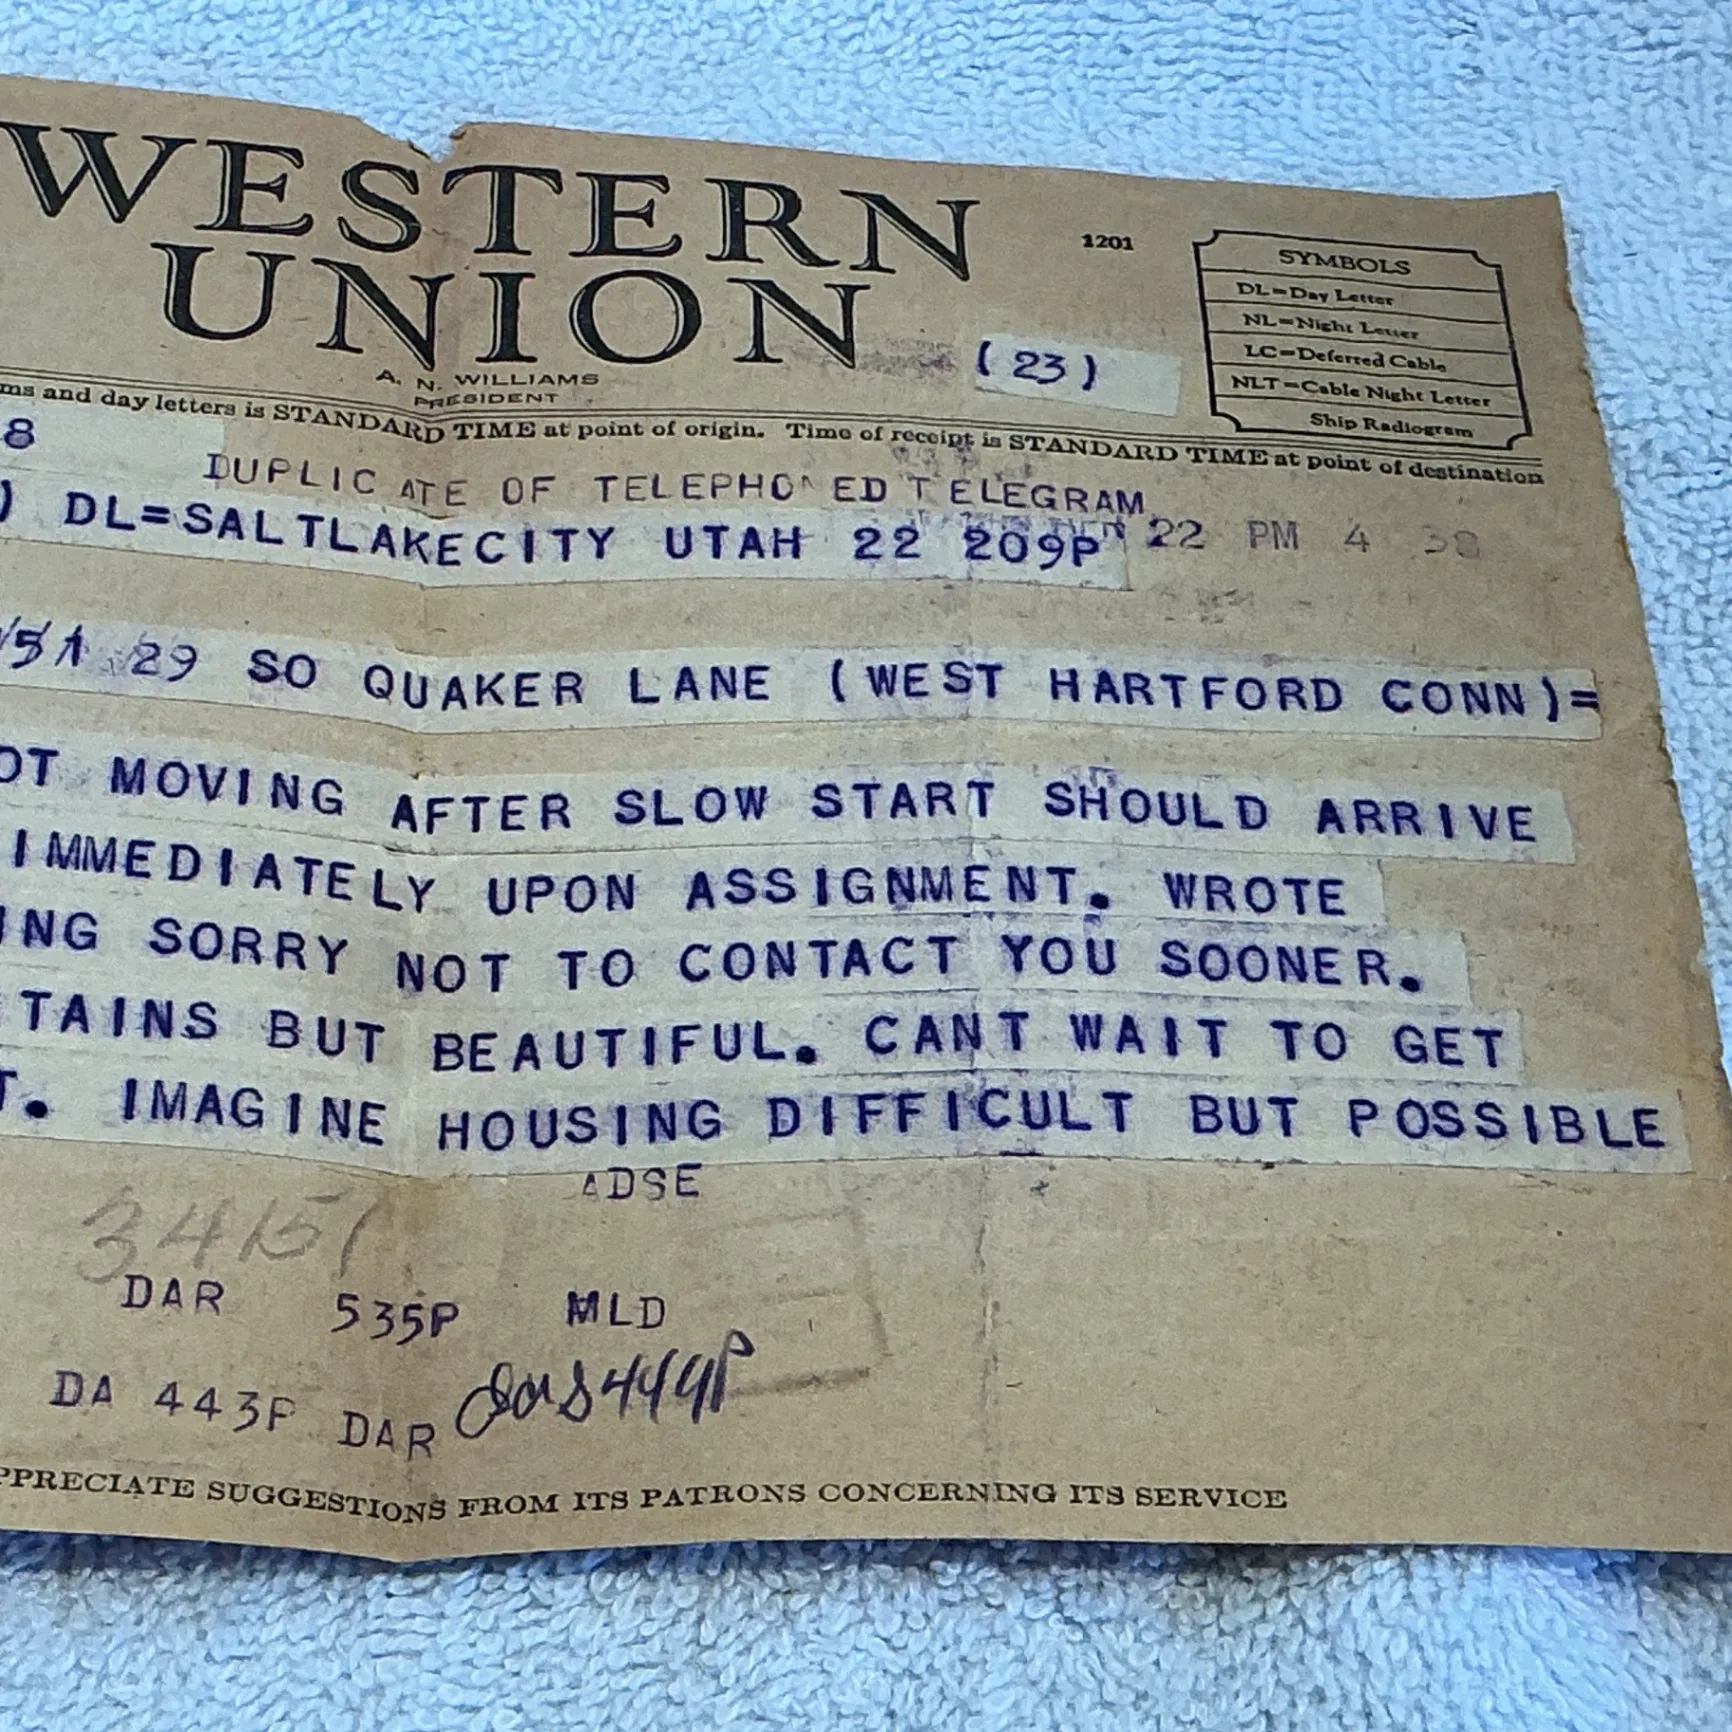 WESTERN
UNION
1201
SYMBOLS
DL=Day Letter
NL=Night Letter
LC=Deferred Cable
NLT=Cable Night Letter
Ship Radiogram
(23)
A. N. WILLIAMS
PRESIDENT
ms and day letters is STANDARD TIME at point of origin. Time of receipt is STANDARD TIME at point of destination
8
DUPLICATE OF TELEPHONED TELEGRAM
) DL=SALTLAKECITY UTAH 22 209P 22 PM 4 38
29 SO QUAKER LANE (WEST HARTFORD CONN)=
OT MOVING AFTER SLOW START SHOULD ARRIVE
IMMEDIATELY UPON ASSIGNMENT. WROTE
ING SORRY NOT TO CONTACT YOU SOONER.
TAINS BUT BEAUTIFUL. CANT WAIT TO GET
T. IMAGINE HOUSING DIFFICULT BUT POSSIBLE
ADSE
34151
DAR 535P MLD
DA 443P DAR 444P
PPRECIATE SUGGESTIONS FROM ITS PATRONS CONCERNING ITS SERVICE